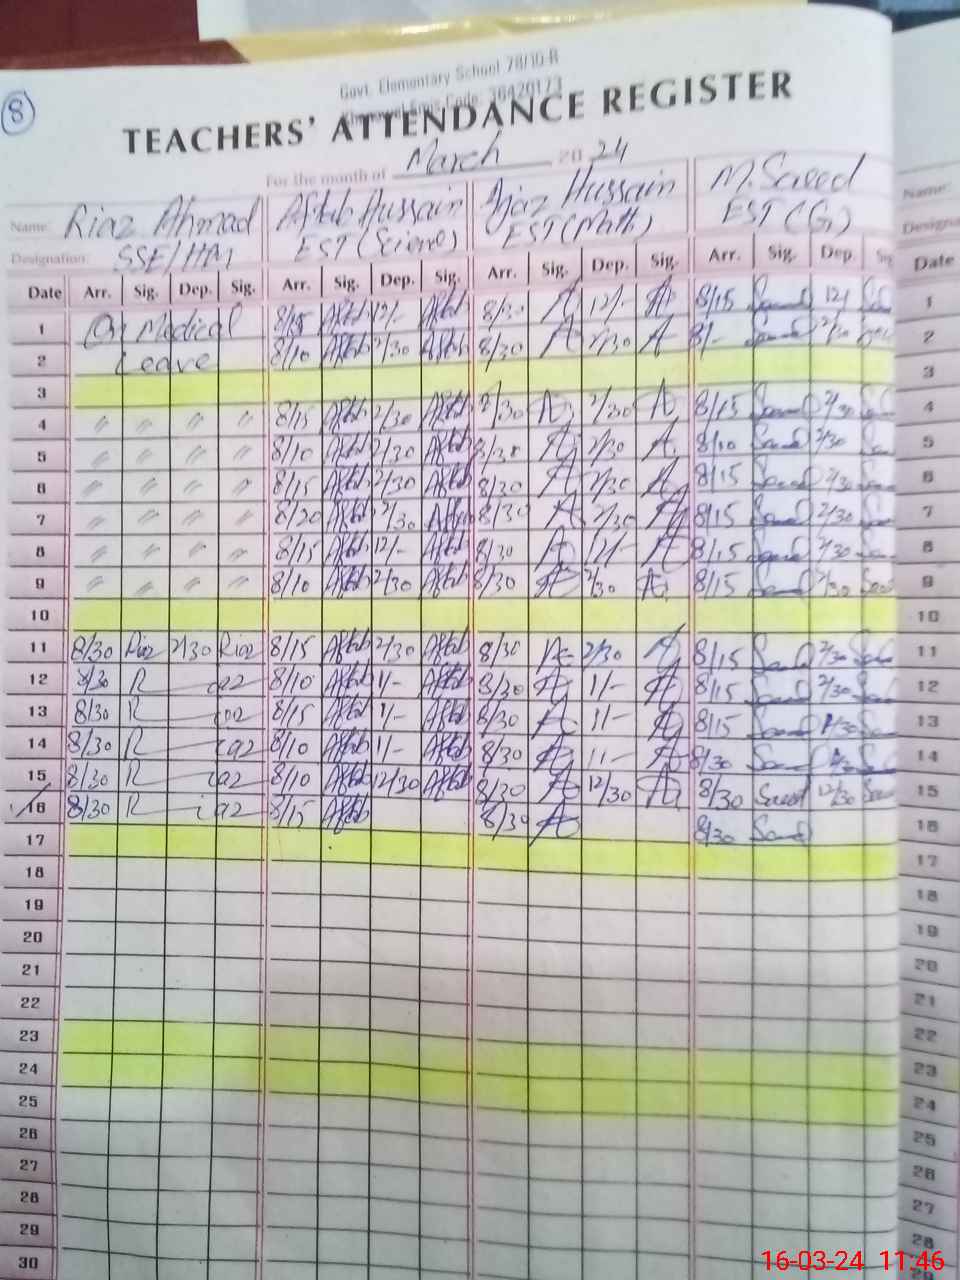 8
Govt. Elementary School 78/10-R
Khanewal Emis Code: 36420173
TEACHERS' ATTENDANCE REGISTER
For the month of March 20 24
Name: Riaz Ahmad Aftab Hussain Ajaz Hussain M. Saeed Name:
Designation: SSE/HM EST (Science) EST (Math) EST (G) Designa
Date Arr. Sig. Dep. Sig. Arr. Sig. Dep. Sig. Arr. Sig. Dep. Sig. Arr. Sig. Dep. Sig Date
1 On Medical 8/15 Aftab 12/- Aftab 8/30 A 12/- A 8/15 Saeed 12/ 1
2 Leave 8/10 Aftab 2/30 Aftab 8/30 A 2/30 A 8/- Saeed 2/30 2
3 3
4 〃 〃 〃 〃 8/15 Aftab 2/30 Aftab 8/30 A 2/30 A 8/15 Saeed 2/30 4
5 〃 〃 〃 〃 8/10 Aftab 2/30 Aftab 8/30 A 2/30 A 8/10 Saeed 2/30 5
6 〃 〃 〃 〃 8/15 Aftab 2/30 Aftab 8/30 A 2/30 A 8/15 Saeed 2/30 6
7 〃 〃 〃 〃 8/20 Aftab 2/30 Aftab 8/30 A 2/30 A 8/15 Saeed 2/30 7
8 〃 〃 〃 〃 8/15 Aftab 12/- Aftab 8/30 A 12/- A 8/15 Saeed 2/30 8
9 〃 〃 〃 〃 8/10 Aftab 2/30 Aftab 8/30 A 2/30 A 8/15 Saeed 2/30 9
10 10
11 8/30 Riaz 2/30 Riaz 8/15 Aftab 2/30 Aftab 8/30 A 2/30 A 8/15 Saeed 2/30 11
12 8/30 R iaz 8/10 Aftab 1/- Aftab 8/30 A 1/- A 8/15 Saeed 2/30 12
13 8/30 R iaz 8/15 Aftab 1/- Aftab 8/30 A 1/- A 8/15 Saeed 13
14 8/30 R iaz 8/10 Aftab 1/- Aftab 8/30 A 1/- A 8/30 Saeed 14
15 8/30 R iaz 8/10 Aftab 12/30 Aftab 8/30 A 12/30 A 8/30 Saeed 12/30 15
16 8/30 R iaz 8/15 Aftab 8/30 A 8/30 Saeed 16
17 17
18 18
19 19
20 20
21 21
22 22
23 23
24 24
25 25
26 26
27 27
28 28
29
30
16-03-24 11:46